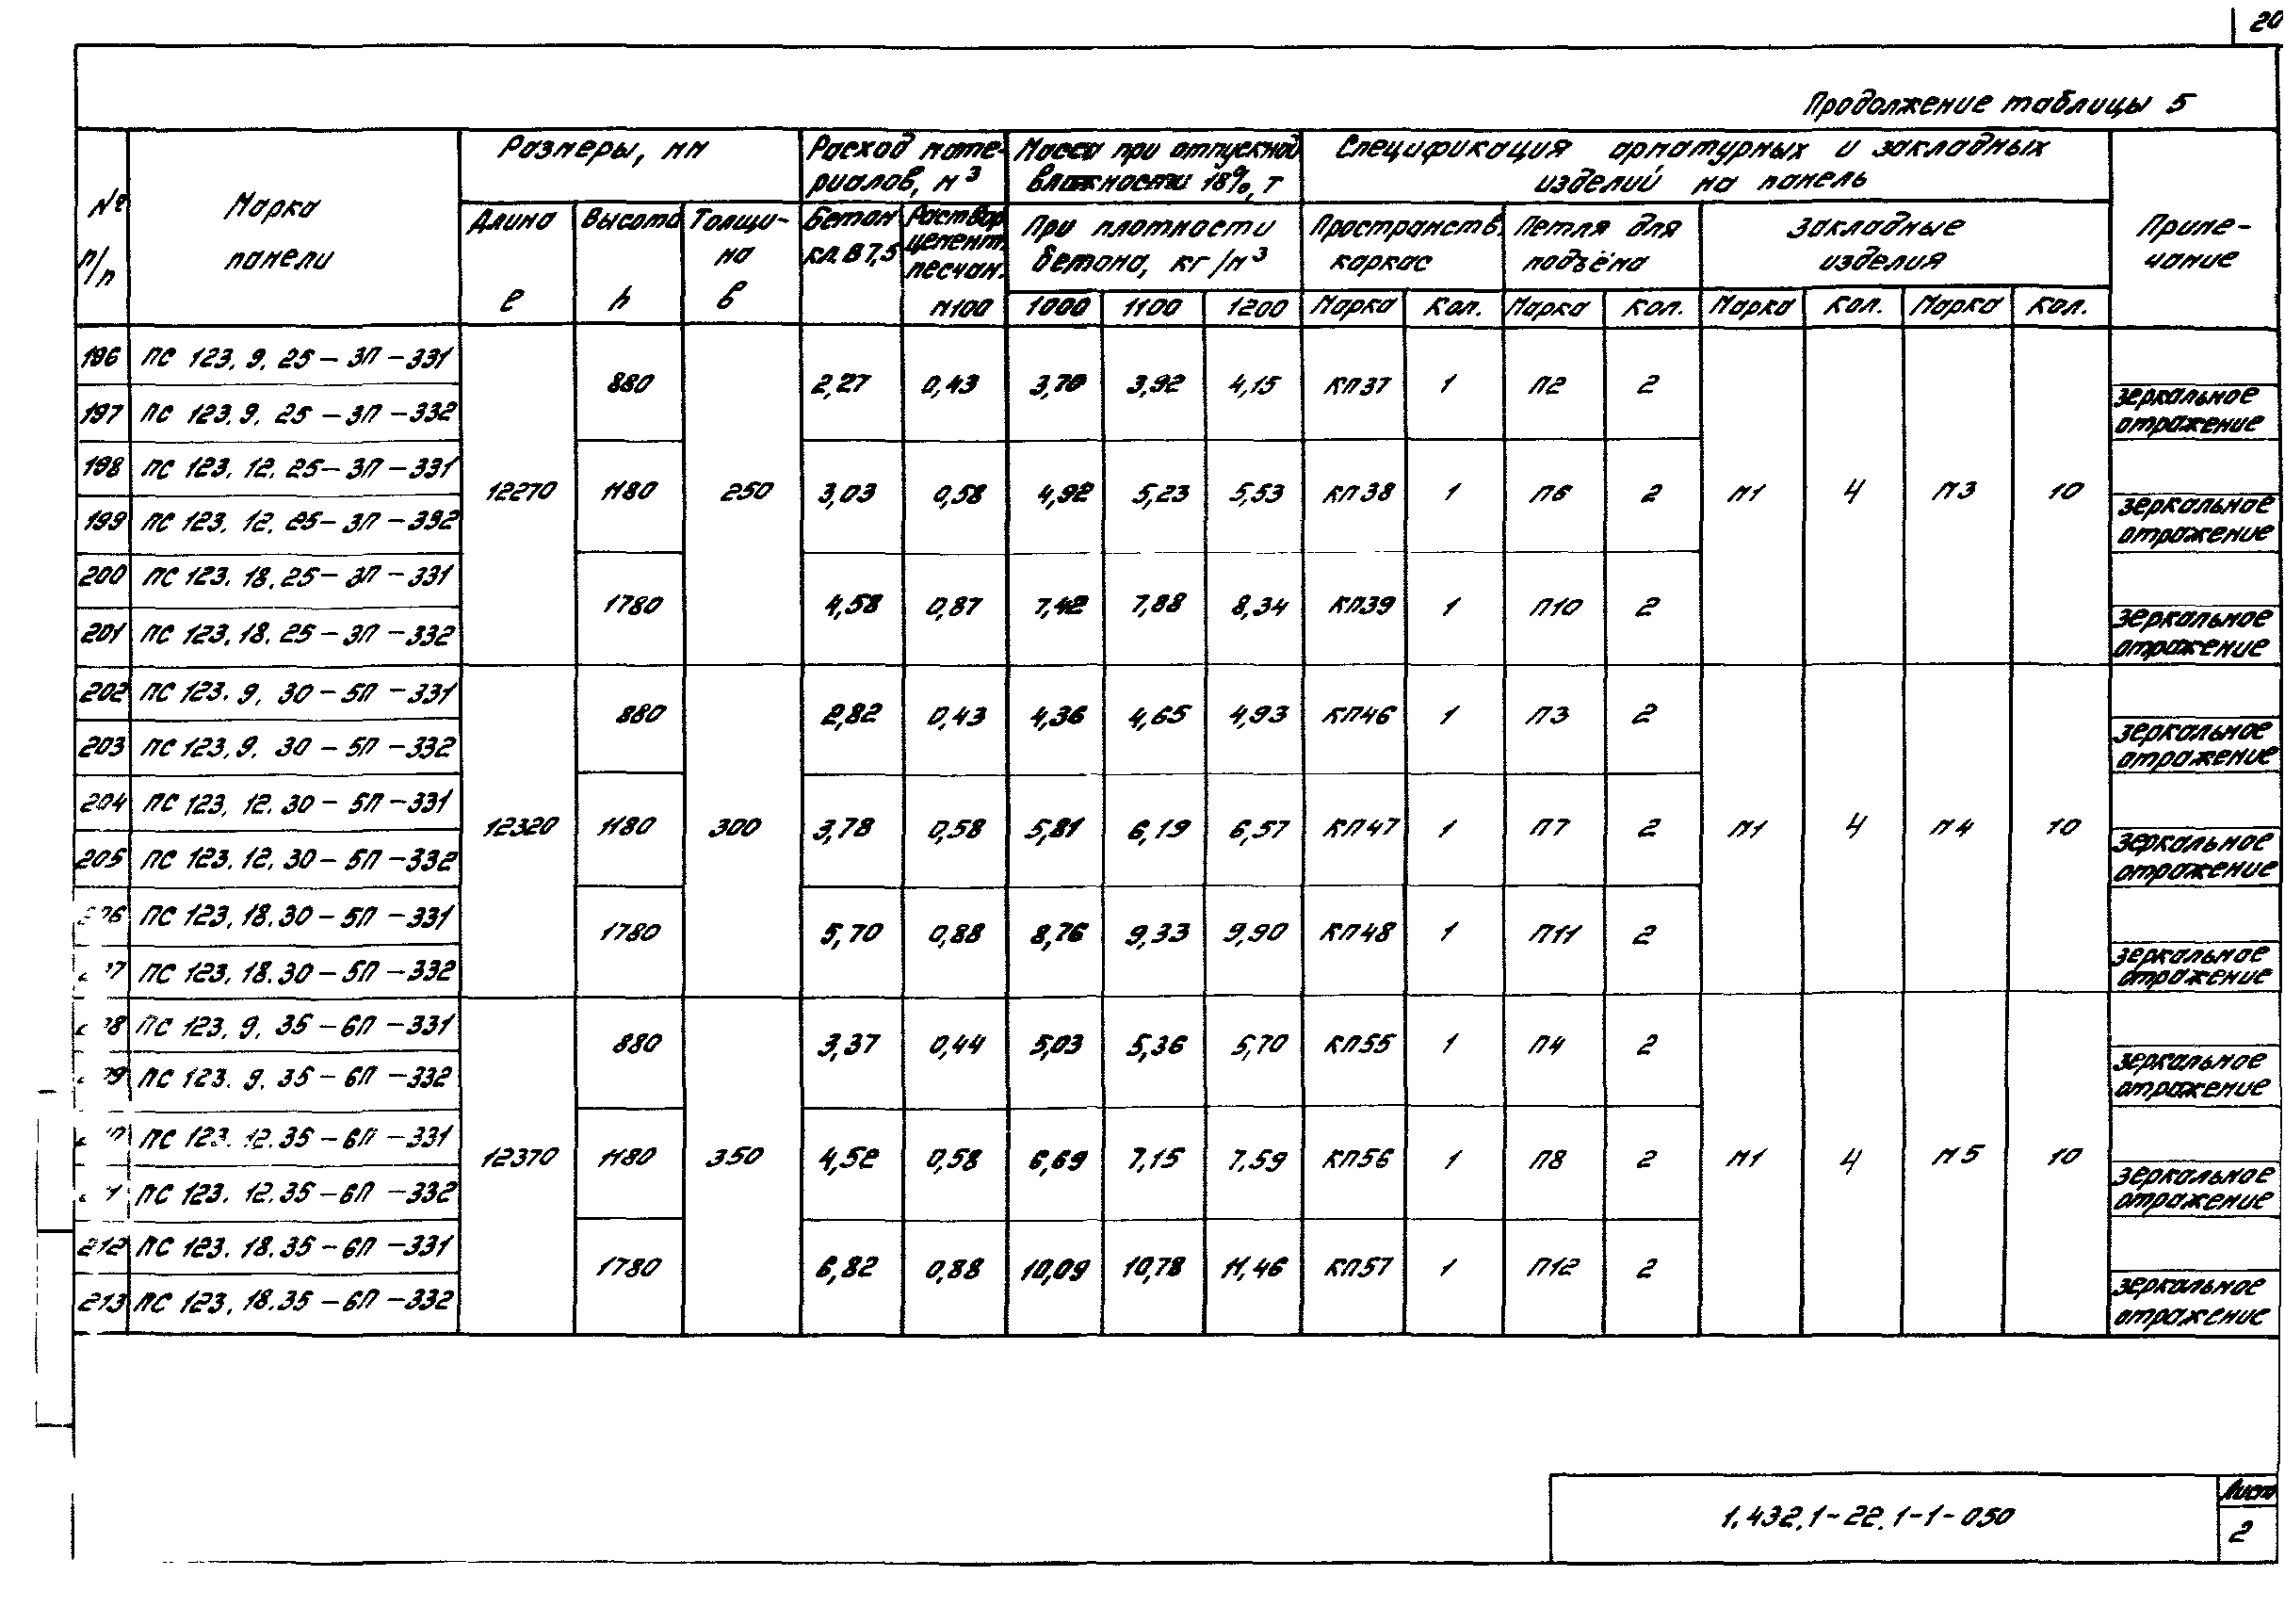 20
Продолжение таблицы 5
№ п/п
Марка панели
Размеры, мм
Длина l
Высота h
Толщина в
Расход материалов, м³
Бетон кл. В 7,5
Раствор цемент. песчан. М100
Масса при отпускной влажности 18%, т
При плотности бетона, кг/м³
1000 1100 1200
Спецификация арматурных и закладных изделий на панель
Пространств. каркас
Петля для подъёма
Закладные изделия
Марка Кол. Марка Кол. Марка Кол. Марка Кол.
Примечание
196 ПС 123.9.25-3П-331
880 2,27 0,43 3,70 3,92 4,15 КП37 1 П2 2
197 ПС 123.9.25-3П-332 зеркальное отражение
198 ПС 123.12.25-3П-331
12270 1180 250 3,03 0,58 4,92 5,23 5,53 КП38 1 П6 2 М1 4 М3 10
199 ПС 123.12.25-3П-332 зеркальное отражение
200 ПС 123.18.25-3П-331
1780 4,58 0,87 7,42 7,88 8,34 КП39 1 П10 2
201 ПС 123.18.25-3П-332 зеркальное отражение
202 ПС 123.9.30-5П-331
880 2,82 0,43 4,36 4,65 4,93 КП46 1 П3 2
203 ПС 123.9.30-5П-332 зеркальное отражение
204 ПС 123.12.30-5П-331
12320 1180 300 3,78 0,58 5,81 6,19 6,57 КП47 1 П7 2 М1 4 М4 10
205 ПС 123.12.30-5П-332 зеркальное отражение
ПС 123.18.30-5П-331
1780 5,70 0,88 8,76 9,33 9,90 КП48 1 П11 2
ПС 123.18.30-5П-332 зеркальное отражение
ПС 123.9.35-6П-331
880 3,37 0,44 5,03 5,36 5,70 КП55 1 П4 2
ПС 123.9.35-6П-332 зеркальное отражение
ПС 123.12.35-6П-331
12370 1180 350 4,52 0,58 6,69 7,15 7,59 КП56 1 П8 2 М1 4 М5 10
ПС 123.12.35-6П-332 зеркальное отражение
212 ПС 123.18.35-6П-331
1780 6,82 0,88 10,09 10,78 11,46 КП57 1 П12 2
213 ПС 123.18.35-6П-332 зеркальное отражение
1.432.1-22.1-1-050
Лист
2